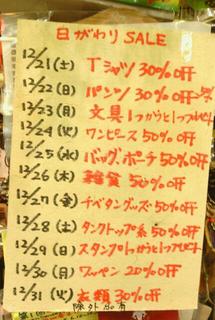 日がわり SALE
12/21(土) Tシャツ 30%Off
12/22(日) パンツ 30%Off
12/23(月) 文具 1つかうと1つプレゼント
12/24(火) ワンピース 50%Off
12/25(水) バッグ、ポーチ 50%Off
12/26(木) 雑貨 50%Off
12/27(金) チベタングッズ 50%Off
12/28(土) タンクトップ系 50%Off
12/29(日) スタンプ 1つかうと1つプレゼント
12/30(月) ワッペン 20%Off
12/31(火) 衣類 30%Off
除外品有